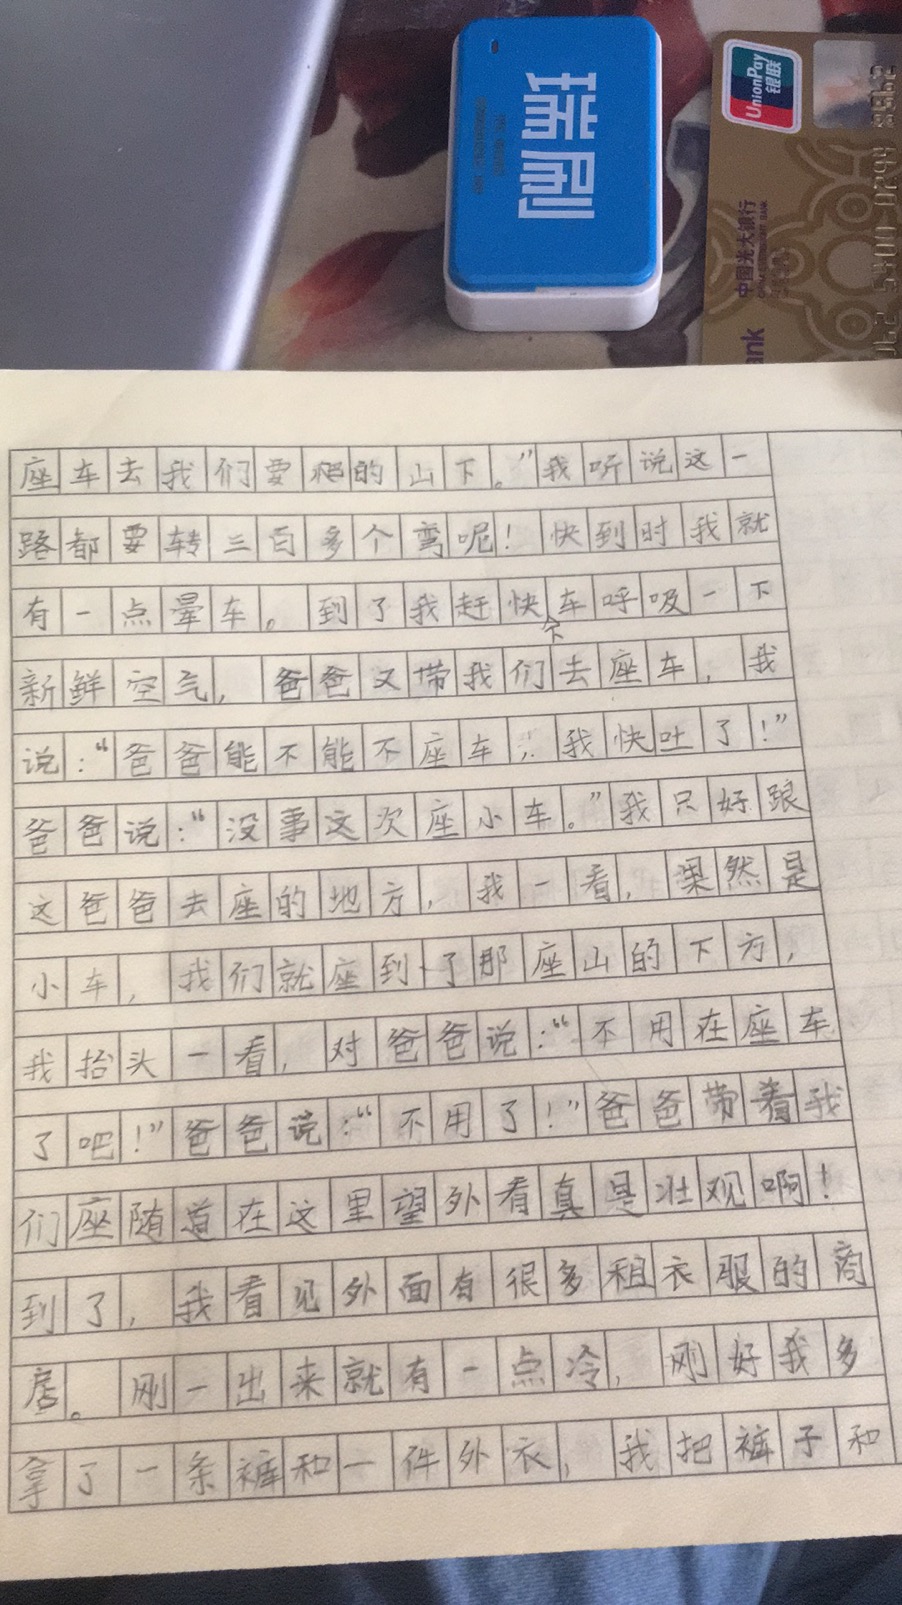 瑞刷
UnionPay
银联
中国光大银行
ank
座车去我们要爬的山下。”我听说这一
路都要转三百多个弯呢！快到时我就
有一点晕车。到了我赶快下车呼吸一下
新鲜空气，爸爸又带我们去座车，我
说：“爸爸能不能不座车，我快吐了！”
爸爸说：“没事这次座小车。”我只好跟
这爸爸去座的地方，我一看，果然是
小车，我们就座到了那座山的下方，
我抬头一看，对爸爸说：“不用在座车
了吧！”爸爸说：“不用了！”爸爸带着我
们座随道在这里望外看真是壮观啊！
到了，我看见外面有很多租衣服的商
店。刚一出来就有一点冷，刚好我多
拿了一条裤和一件外衣，我把裤子和